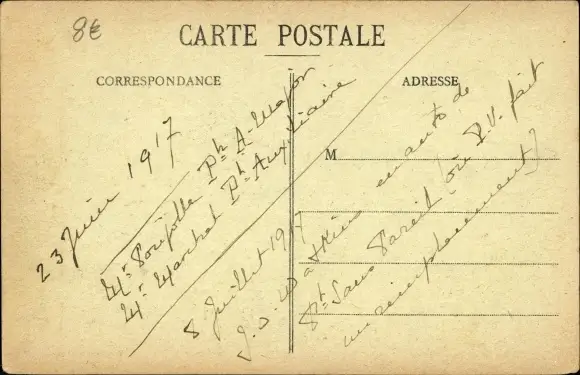 8€
CARTE POSTALE
CORRESPONDANCE
ADRESSE
M
23 Juin 1917
Mr Ph A-Major
Mr Marchal Ph Auxiliaire
8 Juillet 1917
J. D. Watkins en auto de
Pt Sans Pareil (où P.V. fait
un remplacement)